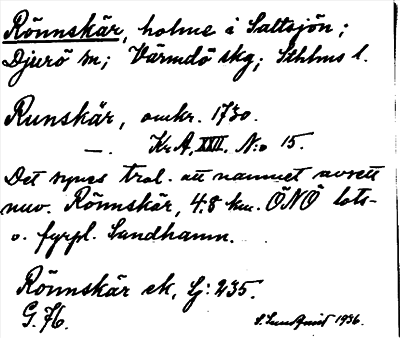 Rönnskär, holme i Saltsjön;
Djurö sn; Värmdö skg; Sthlms l.
Runskär, omkr. 1730.
—. Kr A, XXII. N:o 15.
Det synes trol. att namnet avsett
nuv. Rönnskär, 4.8 km. ÖNÖ lots-
o. fyrpl. Sandhamn.
Rönnskär ek, Lj: 235.
G. 76.
S. Lundquist 1936.